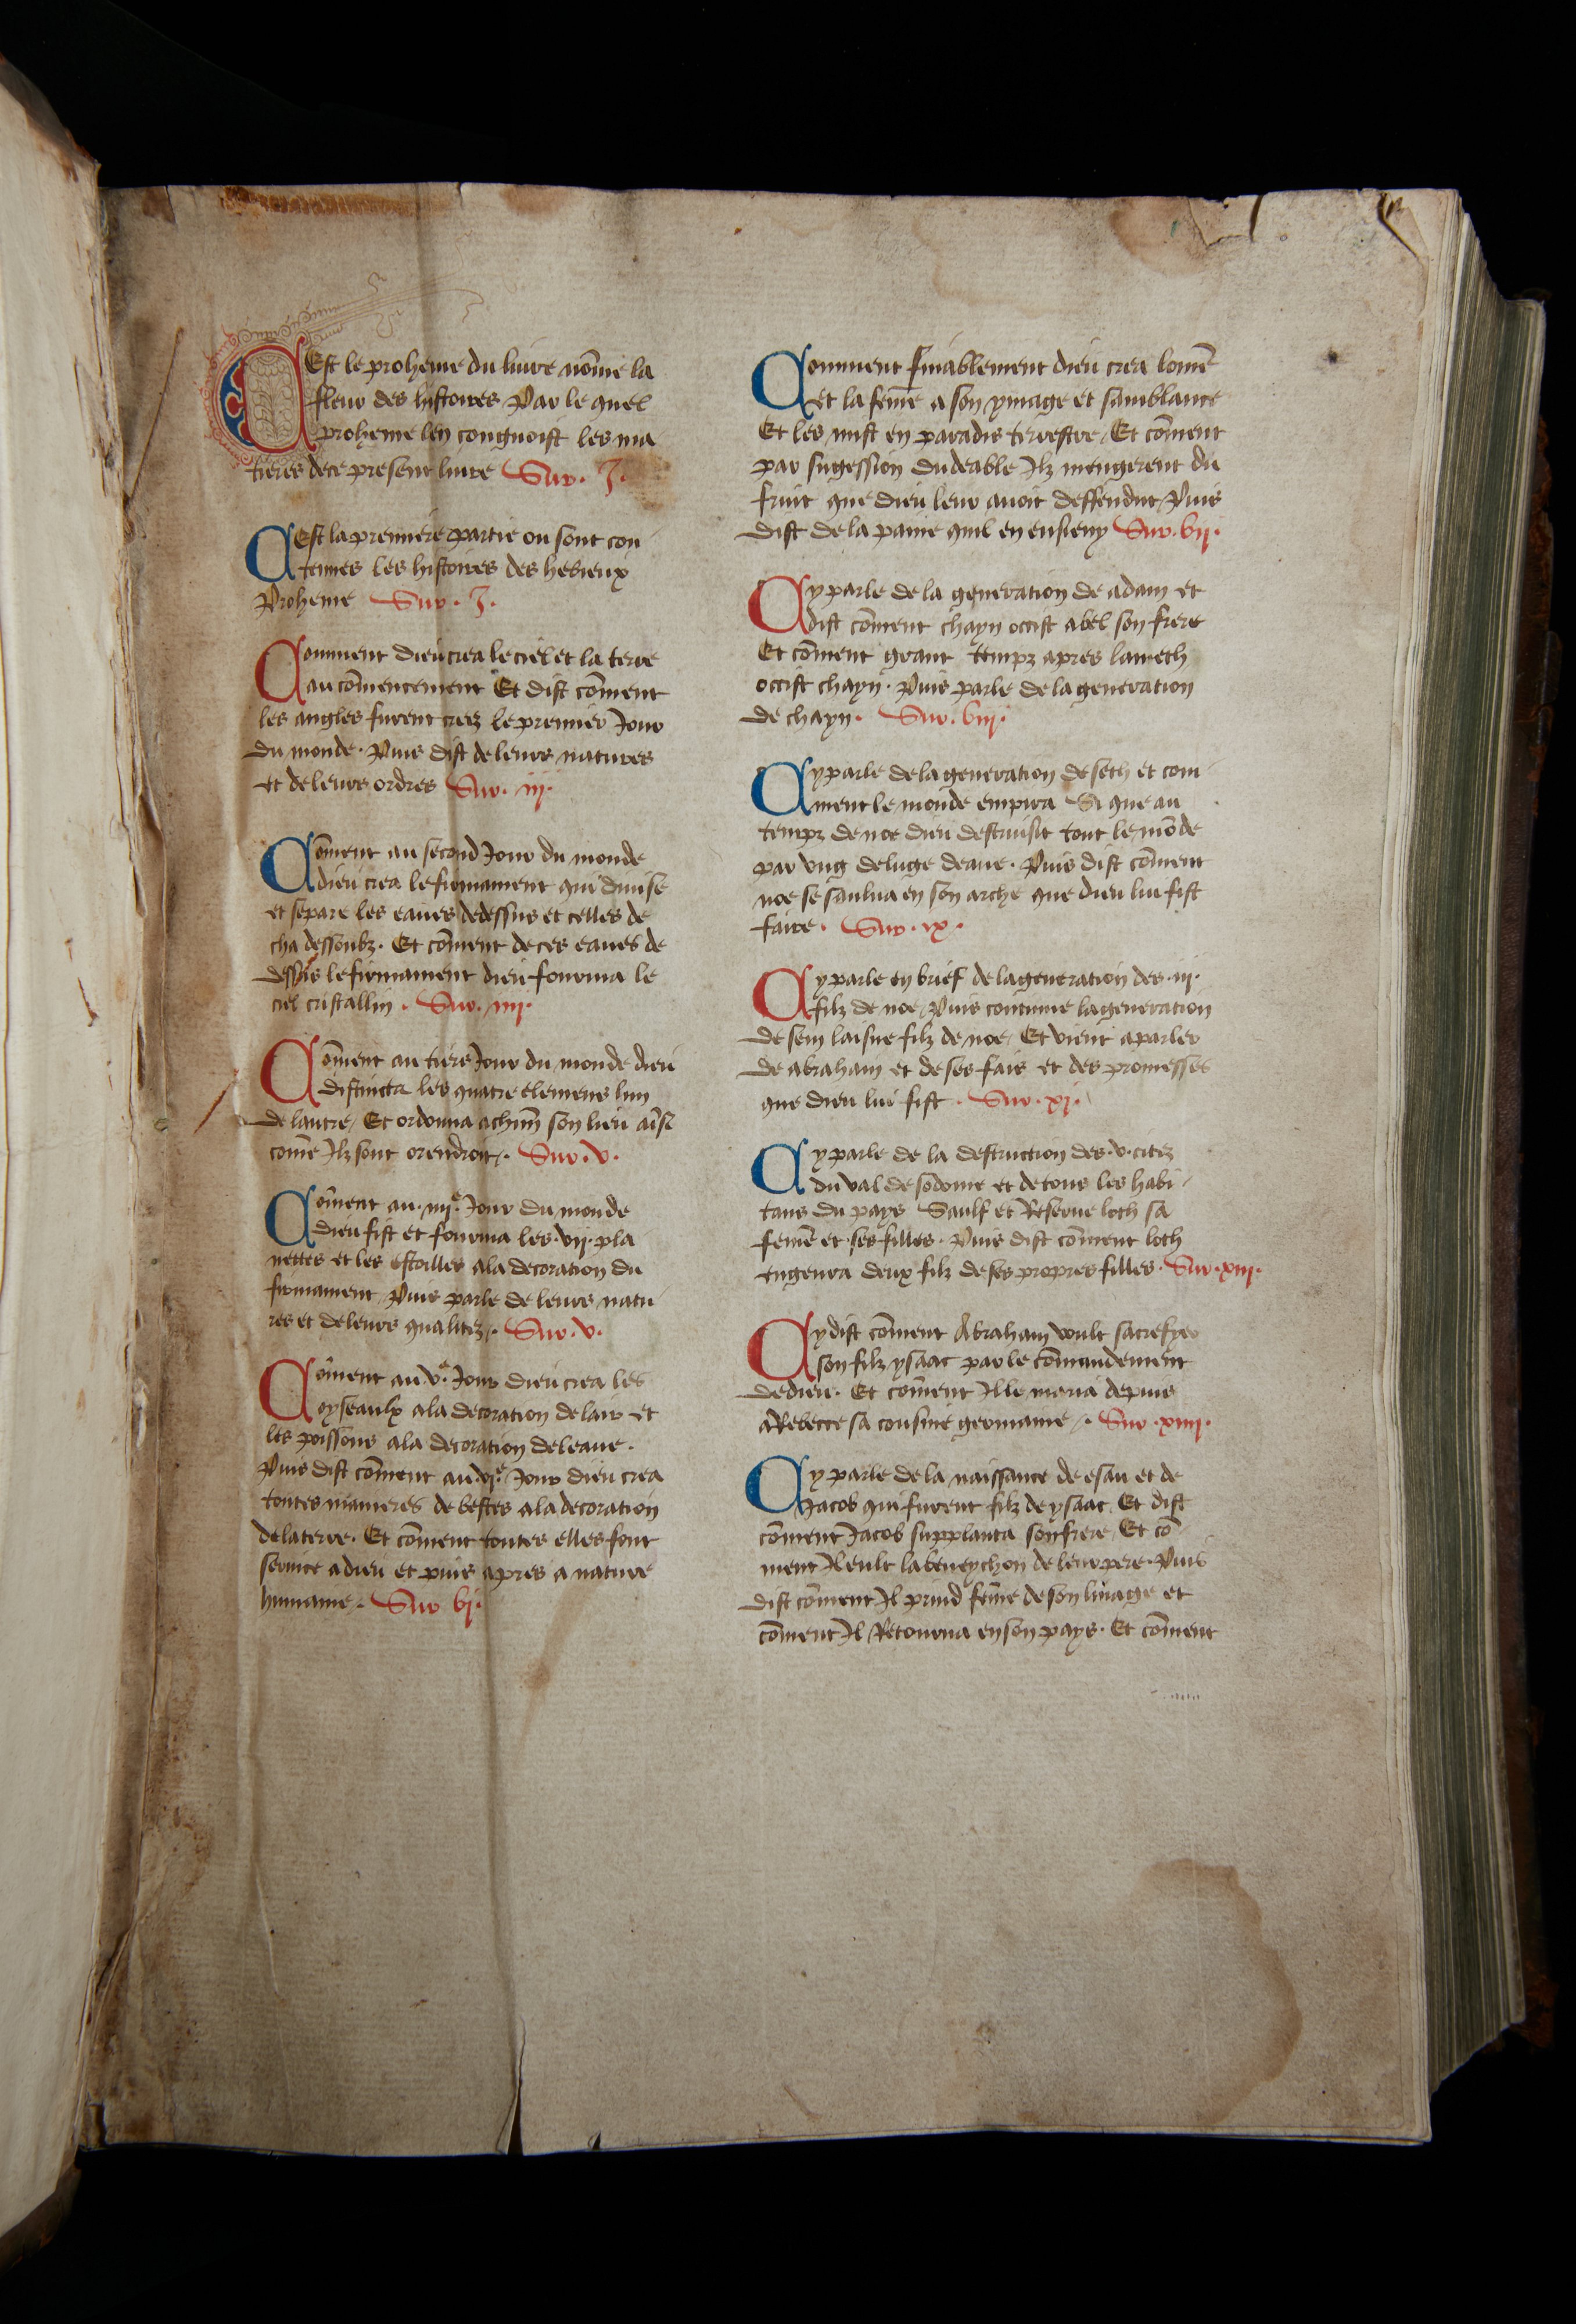 CEst le proheme du liure nõme la
fleur des histoires Par le quel
proheme len congnoist les ma
tieres de ce present liure Sur. J.
CEst la premiere partie ou sont con
tenues les histoires des hebreux
Proheme Sur. J.
Comment dieu crea le ciel et la terre
au cõmencement Et dist cõment
les angles furent creez le premier Jour
du monde. Puis dist de leurs natures
et de leurs ordres Sur. iij.
Cõment au second Jour du monde
dieu crea le firmament qui diuise
et separe les eaues dedessus et celles de
cha dessoubz. Et cõment de ces eaues de
dessus le firmament dieu fourma le
ciel cristallin. Sur. iiij.
Cõment au tiers Jour du monde dieu
distincta les quatre elemens lun
de lautre/ Et ordonna a chũn son lieu aĩsi
cõme Jlz sont orendroit/. Sur. v.
Cõment au. iiij.e Jour du monde
dieu fist et fourma les. vij. pla
nettes et les estoilles a la decoration du
firmament/ Puis parle de leurs natu
res et de leurs qualitez/. Sur. v.
Cõment au. v.e Jour dieu crea les
oyseaulx a la decoration de lair et
les poissons a la decoration de leaue.
Puis dist cõment au. vj.e Jour dieu crea
toutes manieres de bestes a la decoration
de la terre. Et cõment toutes elles font
seruice a dieu et puis apres a nature
humaine. Sur vj.
Comment finablement dieu crea lomẽ
et la fẽme a son ymage et samblance
Et les mist en paradis terrestre/ Et cõment
par sugession du deable Jlz mengerent du
fruit que dieu leur auoit deffendut/ Puis
dist de la paine quil en ensieuy Sur. vij.
Cy parle de la generation de adam et
dist cõment chayn occist abel son frere
Et cõment grant tempz apres lameth
occist chayn. Puis parle de la generation
de chayn. Sur. viij.
Cy parle de la generation de seth et com
ment le monde empira Si que au
tempz de noe dieu destruisit tout le mõde
par vng deluge deaue. Puis dist cõment
noe se saulua en son arche que dieu lui fist
faire. Sur. ix.
Cy parle en brief de la generation des. iij.
filz de noe/ Puis continue la generation
de sem laisne filz de noe/ Et vient a parler
de abraham et de ses fais et des promesses
que dieu lui fist. Sur. xj.
Cy parle de la destruction des. v. citez
du val de sodome et de tous les habi
tans du pays Saulf et Reserue loth sa
femẽ et ses filles. Puis dist cõment loth
engenra deux filz de ses propres filles. Sur. xiij.
Cy dist cõment Abraham voult sacrefyer
son filz ysaac par le cõmandement
de dieu. Et cõment Jl le maria depuis
a Rebecce sa cousine germaine/. Sur. xiiij.
Cy parle de la naissance de esau et de
Jacob qui furent filz de ysaac. Et dist
cõment Jacob supplanta son frere/ Et cõ
ment Jl eult la beneychon de leur pere. Puis
dist cõment Jl prind fẽme de son linage et
cõment Jl Retourna en son pays. Et cõment